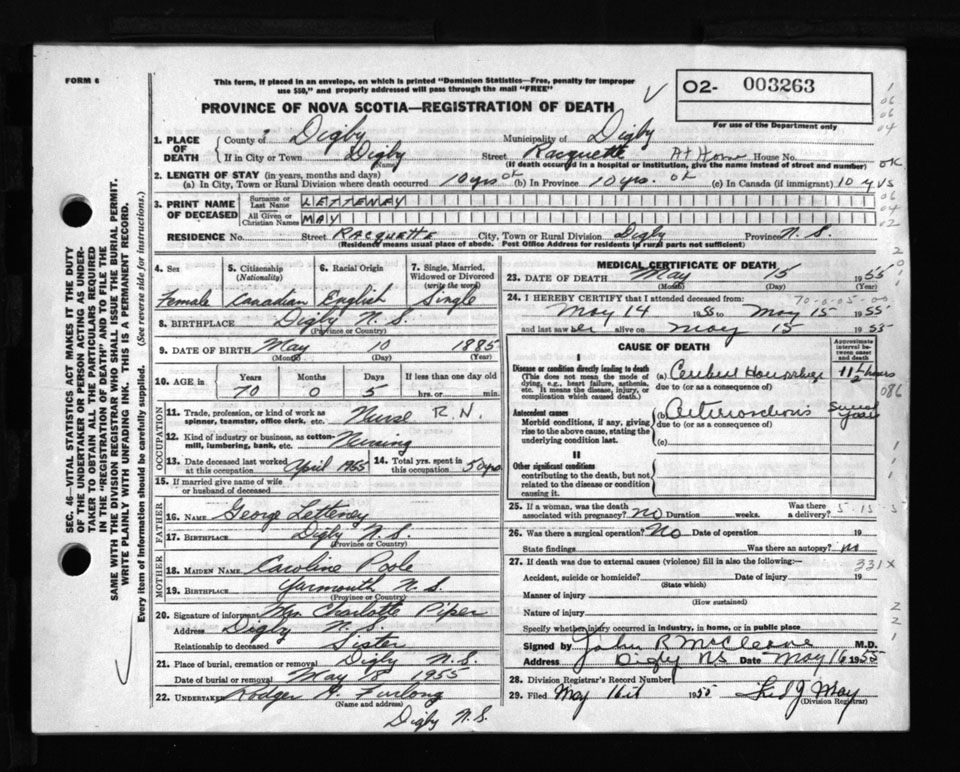 FORM 6
This form, if placed in an envelope, on which is printed "Dominion Statistics—Free, penalty for improper
use $50," and properly addressed will pass through the mail "FREE"
PROVINCE OF NOVA SCOTIA—REGISTRATION OF DEATH
O2- 003263
For use of the Department only
1. PLACE OF DEATH
County of Digby Municipality of Digby
If in City or Town Digby Street Racquette At Home House No.
(Name) (If death occurred in a hospital or institution, give the name instead of street and number)
2. LENGTH OF STAY (in years, months and days)
(a) In City, Town or Rural Division where death occurred 10 yrs ok (b) In Province 10 yrs. ok (c) In Canada (if immigrant) 10 yrs
3. PRINT NAME OF DECEASED
Surname or Last Name LETTENEY
All Given or Christian Names MAY
RESIDENCE No. Street RACQUETTE City, Town or Rural Division Digby Province N. S.
(Residence means usual place of abode. Post Office Address for residents in rural parts not sufficient)
4. Sex 5. Citizenship (Nationality) 6. Racial Origin 7. Single, Married, Widowed or Divorced (write the word)
Female Canadian English Single
8. BIRTHPLACE Digby N. S.
(Province or Country)
9. DATE OF BIRTH May 10 1885
(Month) (Day) (Year)
10. AGE in Years Months Days If less than one day old
70 0 5 hrs. or min.
OCCUPATION
11. Trade, profession, or kind of work as spinner, teamster, office clerk, etc. Nurse R. N.
12. Kind of industry or business, as cotton-mill, lumbering, bank, etc. Nursing
13. Date deceased last worked at this occupation April 1955 14. Total yrs. spent in this occupation 50 yrs
15. If married give name of wife or husband of deceased
FATHER
16. NAME George Letteney
17. BIRTHPLACE Digby N. S.
(Province or Country)
MOTHER
18. MAIDEN NAME Caroline Poole
19. BIRTHPLACE Yarmouth N. S.
(Province or Country)
20. Signature of informant Mrs Charlotte Piper
Address Digby N. S.
Relationship to deceased Sister
21. Place of burial, cremation or removal Digby N. S.
Date of burial or removal May 18 1955
22. UNDERTAKER Rodger A. Furlong
(Name and address)
Digby N. S.
MEDICAL CERTIFICATE OF DEATH
23. DATE OF DEATH May 15 1955
(Month) (Day) (Year)
24. I HEREBY CERTIFY that I attended deceased from:
May 14 1955 to May 15 1955
and last saw her alive on May 15 1955
CAUSE OF DEATH
Approximate interval between onset and death
I
Disease or condition directly leading to death
(This does not mean the mode of dying, e.g., heart failure, asthenia, etc. It means the disease, injury, or complication which caused death.)
(a) Cerebral Hemorrhage 11 1/2 hours
due to (or as a consequence of)
086
Antecedent causes
Morbid conditions, if any, giving rise to the above cause, stating the underlying condition last.
(b) Arteriosclerosis Several years
due to (or as a consequence of)
(c)
II
Other significant conditions
contributing to the death, but not related to the disease or condition causing it.
25. If a woman, was the death associated with pregnancy? no Duration weeks. Was there a delivery?
26. Was there a surgical operation? No Date of operation 19
State findings Was there an autopsy? no
27. If death was due to external causes (violence) fill in also the following:—
331X
Accident, suicide or homicide? Date of injury 19
(State which)
Manner of injury
(How sustained)
Nature of injury
Specify whether injury occurred in industry, in home, or in public place
Signed by John R McCleave M.D.
Address Digby NS Date May 16 1955
28. Division Registrar's Record Number
29. Filed May 16th 1955
(Division Registrar)
SEC. 46—VITAL STATISTICS ACT MAKES IT THE DUTY
OF THE UNDERTAKER OR PERSON ACTING AS UNDERTAKER
TO OBTAIN ALL THE PARTICULARS REQUIRED
IN THE "REGISTRATION OF DEATH" AND TO FILE THE
SAME WITH THE DIVISION REGISTRAR WHO SHALL ISSUE THE BURIAL PERMIT.
WRITE PLAINLY WITH UNFADING INK. THIS IS A PERMANENT RECORD.
Every item of information should be carefully supplied. (See reverse side for instructions.)